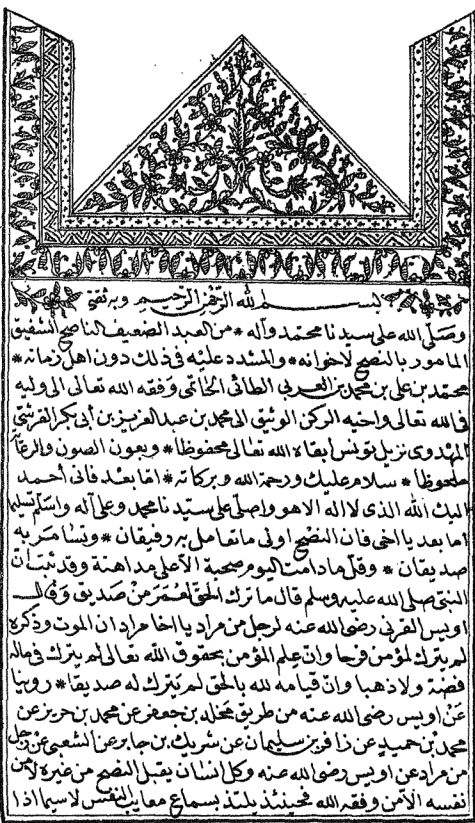 بسم الله الرحمن الرحيم وبه ثقتي
وصلى الله على سيدنا محمد وآله * من العبد الضعيف الناصح الشفيق
المامور بالنصح لاخوانه * والمشدد عليه في ذلك دون اهل زمانه *
محمد بن على بن محمد بن العربي الطائى الحاتمى وفقه الله تعالى الى وليه
في الله تعالى واخيه الركن الوثيق الى محمد بن عبد العزيز بن أبي بكر القرشى
المهدوى نزيل تونس ابقاه الله تعالى محفوظا * وبعون الصون والرعاية
ملحوظا * سلام عليك ورحمة الله وبركاته * امّا بعد فانى أحمد
اليك الله الذى لا اله الا هو واصلى على سيدنا محمد وعلى آله واسلم تسليما
اما بعد يا اخى فان النصح اولى ما تعامل به رفيقان * وتسامر به
صديقان * وقل ما دامت اليوم صحبة الا على مداهنة وقد ثبت ان
النبى صلى الله عليه وسلم قال ما ترك الحق لعمر من صديق وقال
اويس القرنى رضى الله عنه لرجل من مراد يا اخا مراد ان الموت وذكره
لم يترك لمؤمن فرحا وان علم المؤمن بحقوق الله تعالى لم يترك فى ماله
فضة ولا ذهبا وان قيامه لله بالحق لم يترك له صديقا * روينا
عن اويس رضى الله عنه من طريق مخلد بن جعفر عن محمد بن حريز عن
محمد بن حميد عن زافر بن سليمان عن شريك بن جابر عن الشعبى عن رجل
من مراد عن اويس رضى الله عنه وكل انسان يقبل النصح من غيره لا من
نفسه الا من وفقه الله فحينئذ يلتذ بسماع معايب النفس لا سيما اذا